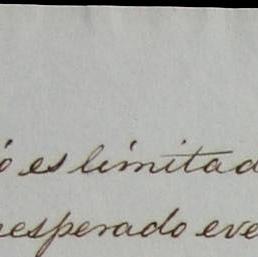 ó es limitad
nesperado eve